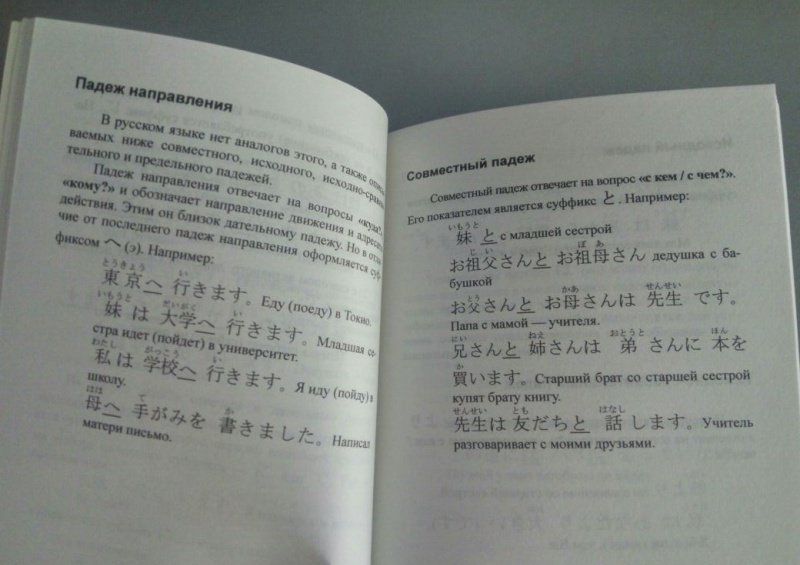 Падеж направления
В русском языке нет аналогов этого, а также описы-
ваемых ниже совместного, исходного, исходно-сравни-
тельного и предельного падежей.
Падеж направления отвечает на вопросы «куда?»,
«кому?» и обозначает направление движения и адресата
действия. Этим он близок дательному падежу. Но в отли-
чие от последнего падеж направления оформляется суф-
фиксом へ (э). Например:
とうきょう い
東京へ 行きます。Еду (поеду) в Токио.
いもうと だいがく い
妹 は 大学へ 行きます。Младшая се-
стра идет (пойдет) в университет.
わたし がっこう い
私は 学校へ 行きます。Я иду (пойду) в
школу.
はは て か
母へ 手がみを 書きました。Написал
матери письмо.
Совместный падеж
Совместный падеж отвечает на вопрос «с кем / с чем?».
Его показателем является суффикс と. Например:
いもうと
妹 と с младшей сестрой
じい ばあ
お祖父さんと お祖母さん дедушка с ба-
бушкой
とう かあ せんせい
お父さんと お母さんは 先生 です。
Папа с мамой — учителя.
にい ねえ おとうと ほん
兄さんと 姉さんは 弟 さんに 本を
か
買います。Старший брат со старшей сестрой
купят брату книгу.
せんせい とも はなし
先生は 友だちと 話 します。Учитель
разговаривает с моими друзьями.